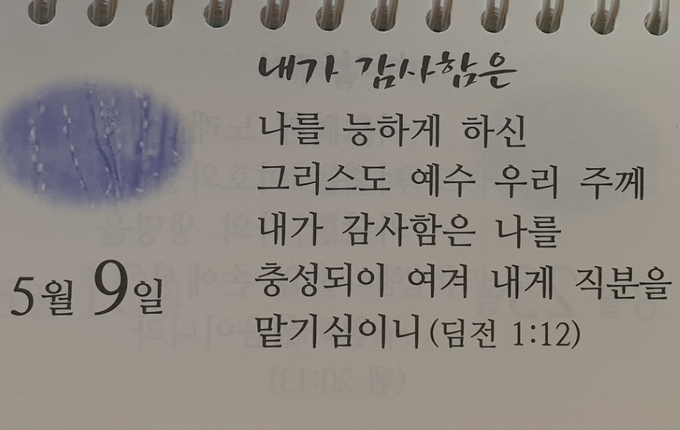 내가 감사함은
나를 능하게 하신
그리스도 예수 우리 주께
내가 감사함은 나를
충성되이 여겨 내게 직분을
맡기심이니(딤전 1:12)
5월 9일